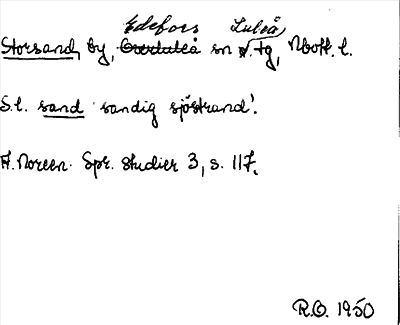 Edefors Luleå
Storsand, by, Överluleå sn o. tg, Nbott. l.
S.l. sand 'sandig sjöstrand'.
A. Noreen. Spr. studier 3, s. 117.
R.O. 1950